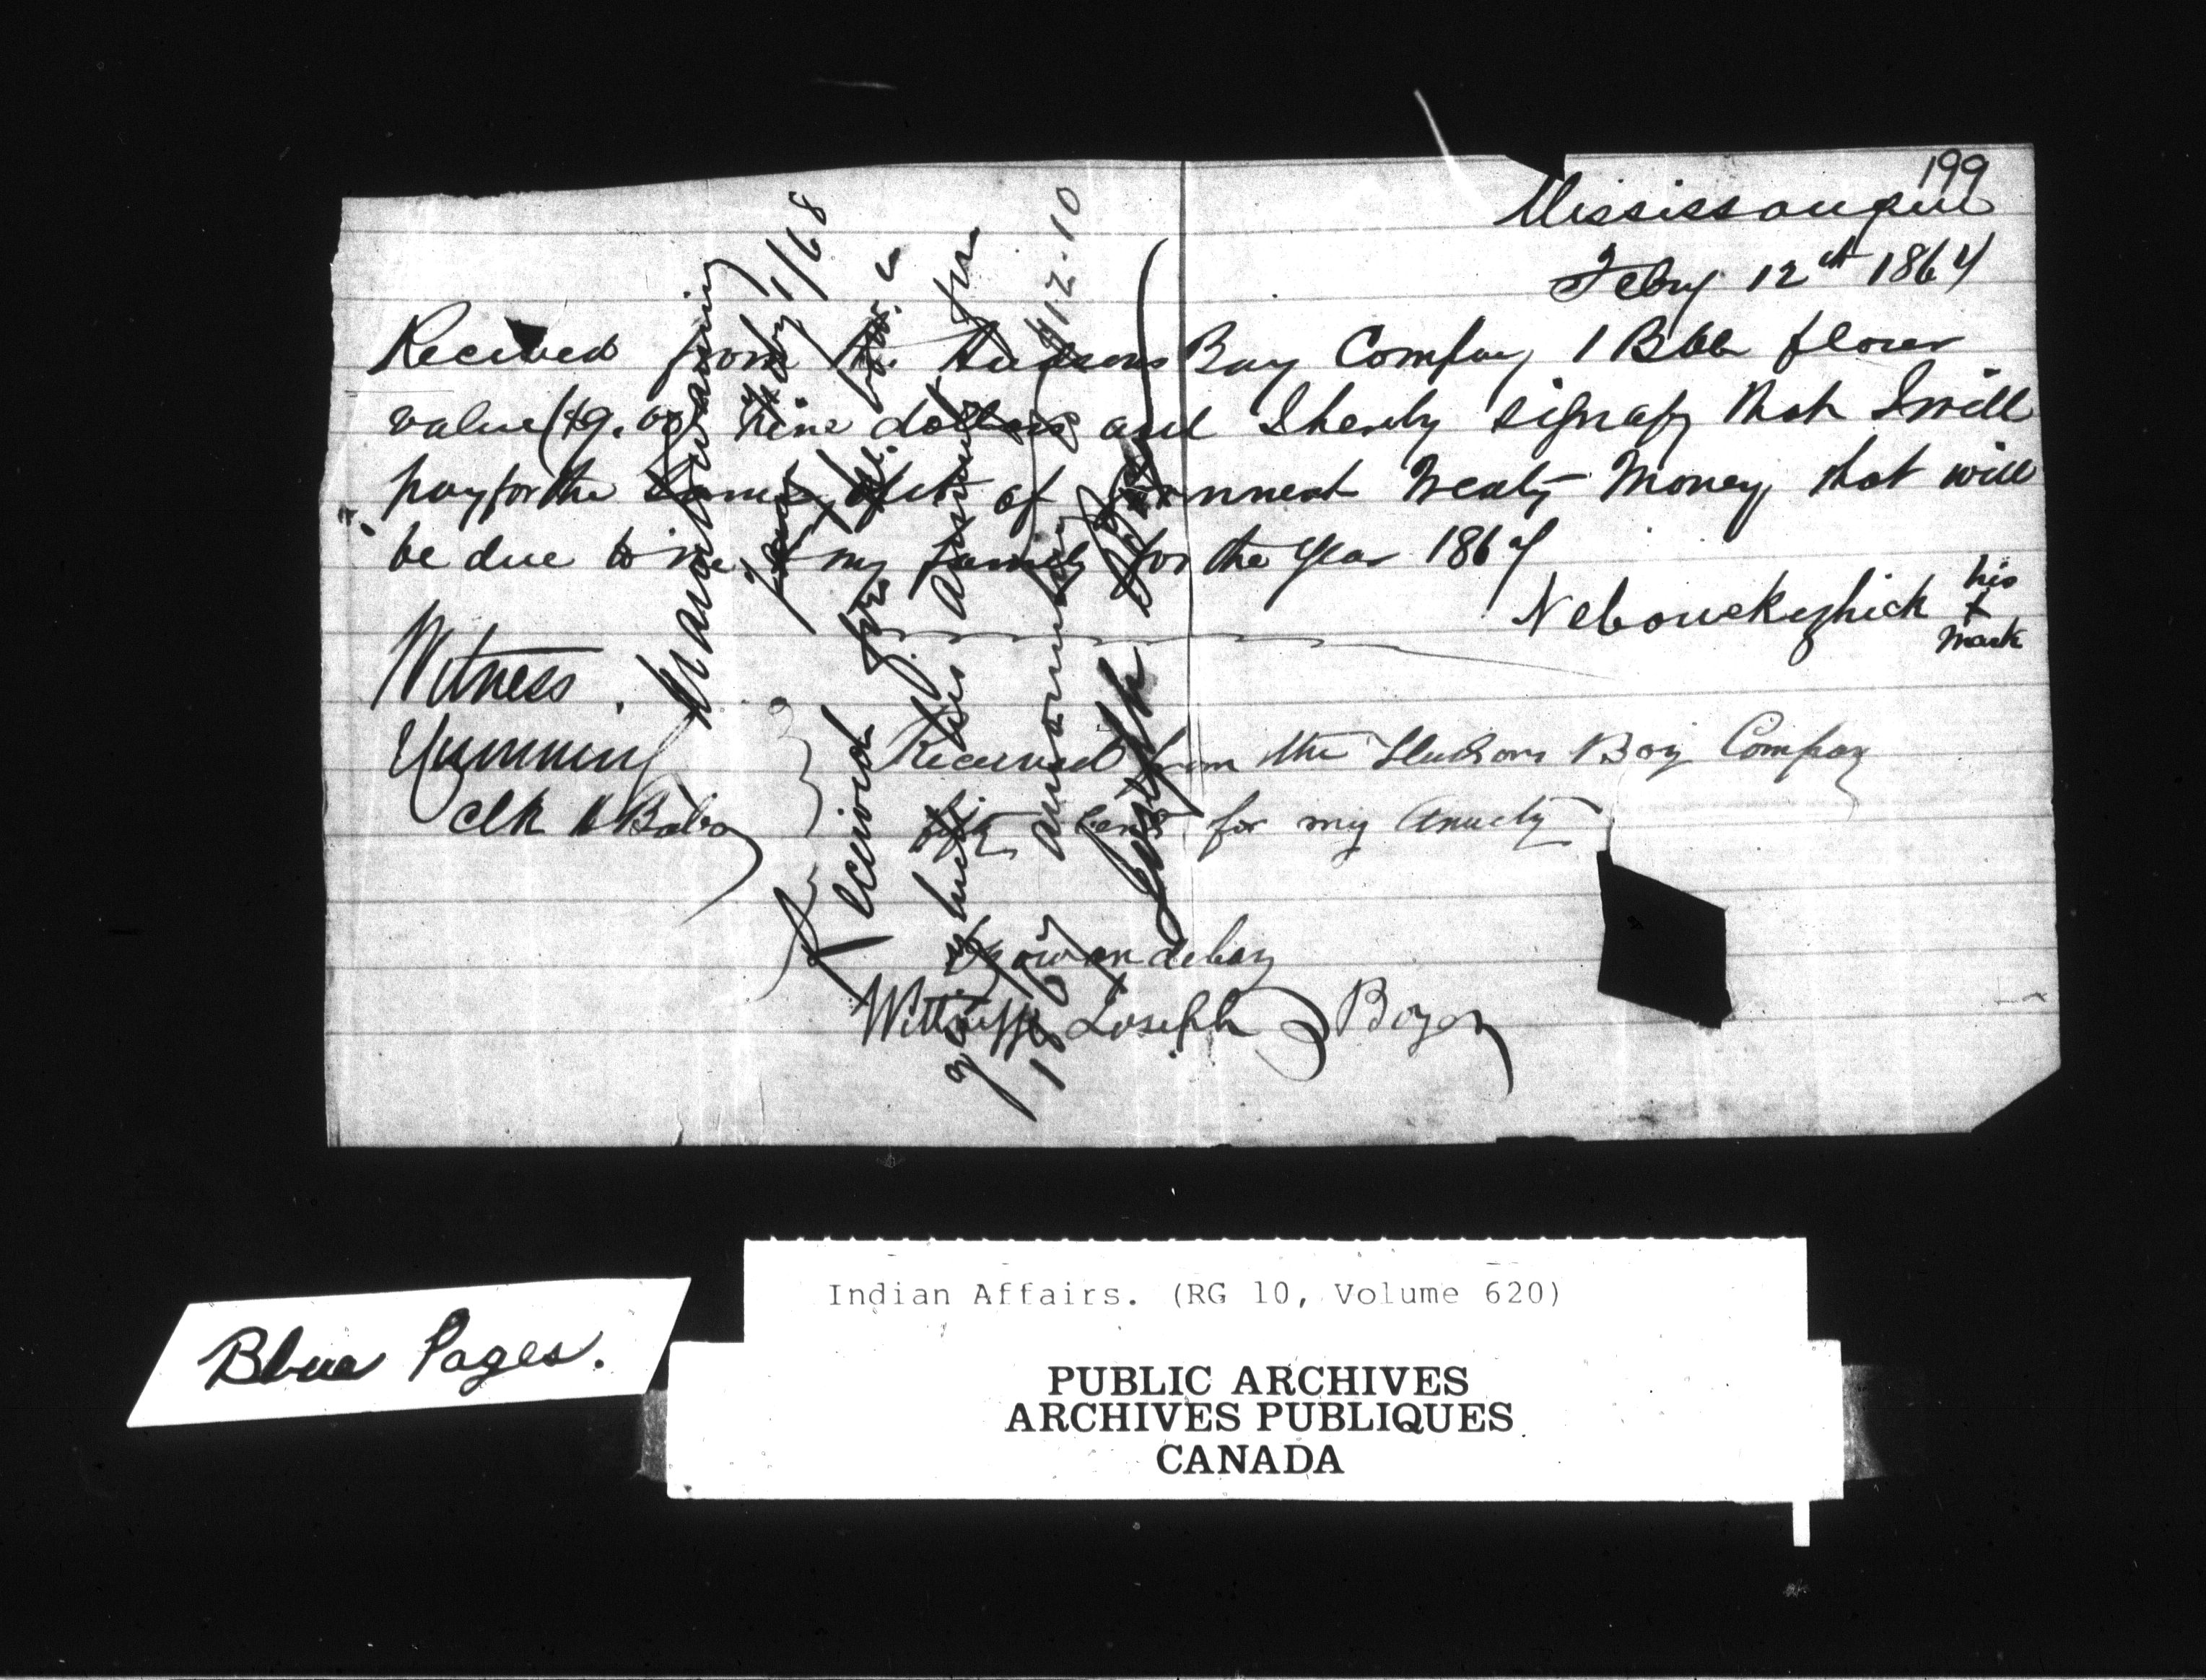 199
Mississaugui
Feby 12th 1867
Received from the Hudsons Bay Company 1 Bbl flour
value ($9.00) Nine dollars and I hereby signafy that I will
pay for the Same out of Treaty Money that will
be due to me & my family for the year 1867
Nebowekeshick his
X
mark
Witness
clk
Received from the Hudsons Bay Company
cents for my Anuety
Wittness Joseph Boyer
Manitowaning
Feby 1/68
Received from the H. B. Co.
his Annuity for
1867 amounting $12.10
Joseph
Blue Pages.
Indian Affairs. (RG 10, Volume 620)
PUBLIC ARCHIVES
ARCHIVES PUBLIQUES
CANADA